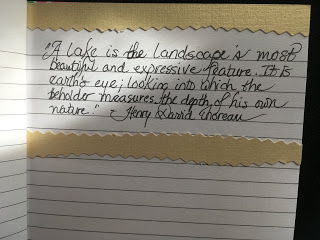 "A lake is the landscape's most
beautiful and expressive feature. It is
earth's eye; looking into which the
beholder measures the depth of his own
nature." - Henry David Thoreau